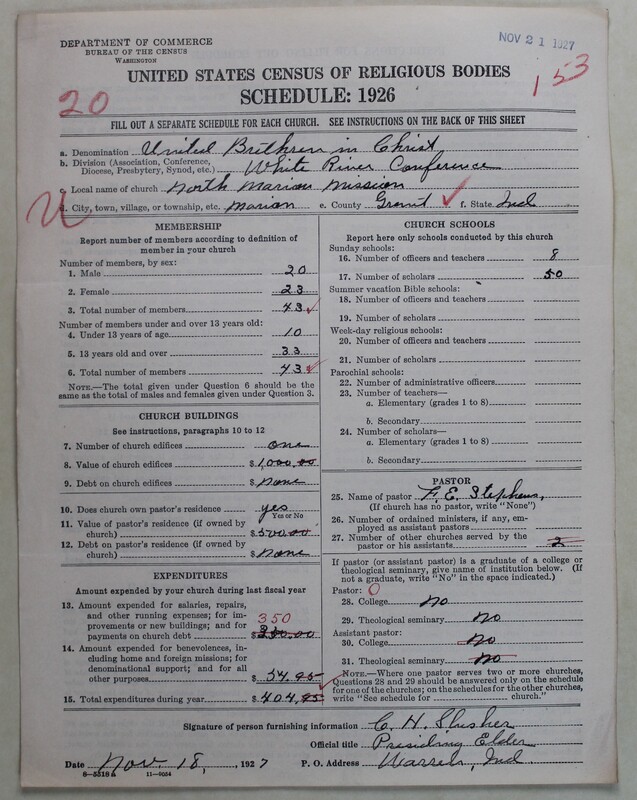 DEPARTMENT OF COMMERCE
BUREAU OF THE CENSUS
WASHINGTON
NOV 21 1927
153
UNITED STATES CENSUS OF RELIGIOUS BODIES
SCHEDULE: 1926
20
FILL OUT A SEPARATE SCHEDULE FOR EACH CHURCH. SEE INSTRUCTIONS ON THE BACK OF THIS SHEET
a. Denomination United Brethren in Christ
b. Division (Association, Conference, Diocese, Presbytery, Synod, etc.) White River Conference
c. Local name of church North Marion Mission
d. City, town, village, or township, etc. Marion e. County Grant f. State Ind
MEMBERSHIP
Report number of members according to definition of
member in your church
Number of members, by sex:
1. Male 20
2. Female 23
3. Total number of members 43
Number of members under and over 13 years old:
4. Under 13 years of age 10
5. 13 years old and over 33
6. Total number of members 43
NOTE.—The total given under Question 6 should be
same as the total of males and females given under Question 3.
CHURCH BUILDINGS
See instructions, paragraphs 10 to 12
7. Number of church edifices one
8. Value of church edifices $1,000,00
9. Debt on church edifices $none
10. Does church own pastor's residence yes
Yes or No
11. Value of pastor's residence (if owned by
church) $500,00
12. Debt on pastor's residence (if owned by
church) $none
EXPENDITURES
Amount expended by your church during last fiscal year
13. Amount expended for salaries, repairs,
and other running expenses; for im- 350
provements or new buildings; and for
payments on church debt $350.00
14. Amount expended for benevolences, in-
cluding home and foreign missions; for
denominational support; and for all
other purposes $54.95
15. Total expenditures during year $404,95
CHURCH SCHOOLS
Report here only schools conducted by this church
Sunday schools:
16. Number of officers and teachers 8
17. Number of scholars 50
Summer vacation Bible schools:
18. Number of officers and teachers
19. Number of scholars
Week-day religious schools:
20. Number of officers and teachers
21. Number of scholars
Parochial schools:
22. Number of administrative officers
23. Number of teachers—
a. Elementary (grades 1 to 8)
b. Secondary
24. Number of scholars—
a. Elementary (grades 1 to 8)
b. Secondary
PASTOR
25. Name of pastor F. E. Stephens,
(If church has no pastor, write "None")
26. Number of ordained ministers, if any, em-
ployed as assistant pastors
27. Number of other churches served by the
pastor or his assistants 2
If pastor (or assistant pastor) is a graduate of a college or
theological seminary, give name of institution below. (If
not a graduate, write "No" in the space indicated.)
Pastor: 0
28. College no
29. Theological seminary No
Assistant pastor:
30. College No
31. Theological seminary No
NOTE.—Where one pastor serves two or more churches,
Questions 28 and 29 should be answered only on the schedule
for one of the churches; on the schedules for the other churches,
write "See schedule for church."
Signature of person furnishing information C. H. Slusher
Official title Presiding Elder
Date Nov. 18, 1927 P. O. Address Warren, Ind
8—5318a 11—9054